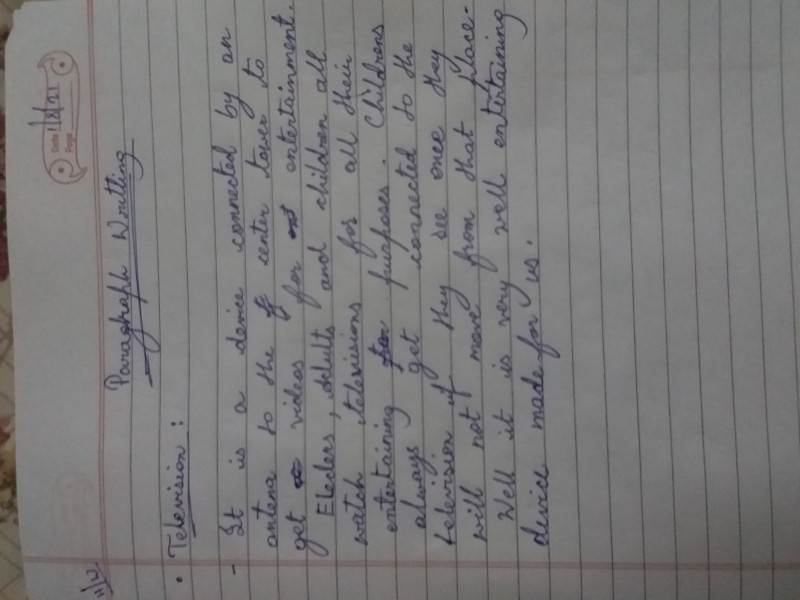 Date 1/8/21
Page
H/W
Paragraph Writting
• Television :
- It is a device connected by an
antena to the center tower to
get videos for entertainment.
Elcders, adults and children all
watch televisions for all their
entertaining purposes. Childrens
always get connected to the
television if they see once they
will not move from that place-
Well it is very well entertaining
device made for us.